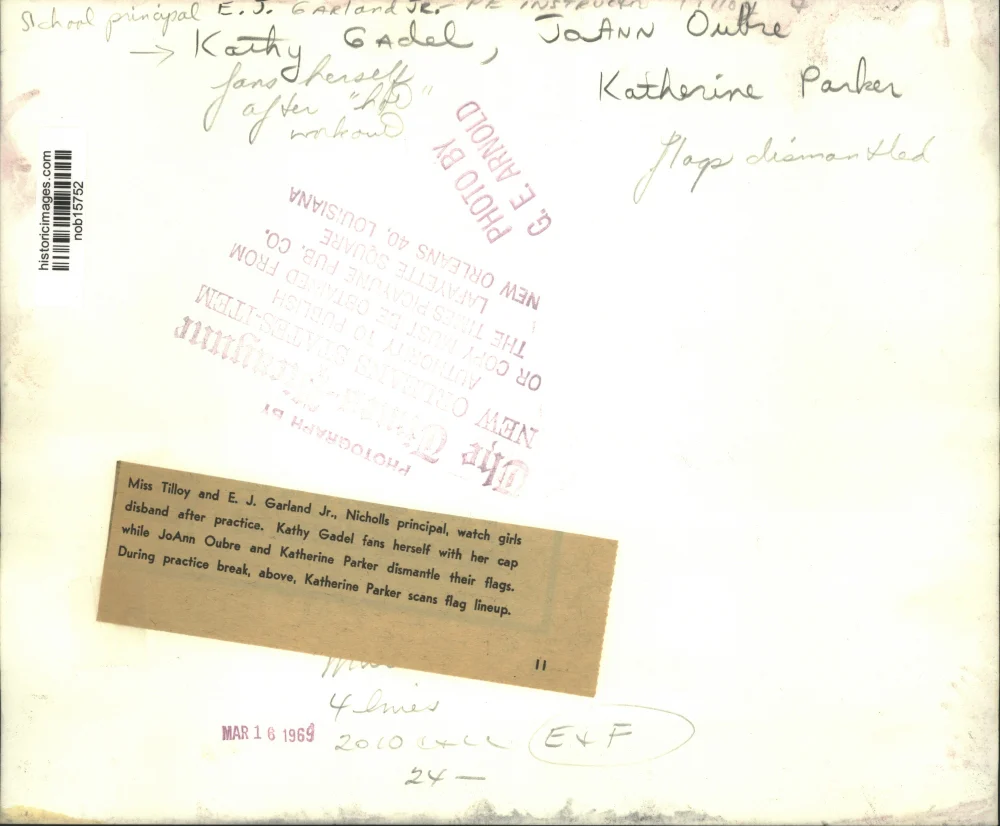 School principal E. J. GARland JR. PE INSTRUCTR
→ Kathy Gadel, JoANN Oubre
fans herself
after "hot"
workout
Katherine Parker
flags dismantled
historicimages.com
nob15752
PHOTO BY
G. E. ARNOLD
PHOTOGRAPH BY
The Times-Picayune
NEW ORLEANS STATES-ITEM
AUTHORITY TO PUBLISH
OR COPY MUST BE OBTAINED FROM
THE TIMES-PICAYUNE PUB. CO.
LAFAYETTE SQUARE
NEW ORLEANS 40, LOUISIANA
Miss Tilloy and E. J. Garland Jr., Nicholls principal, watch girls
disband after practice. Kathy Gadel fans herself with her cap
while JoAnn Oubre and Katherine Parker dismantle their flags.
During practice break, above, Katherine Parker scans flag lineup.
11
4 lines
MAR 16 1969
2010 E & F
24 —